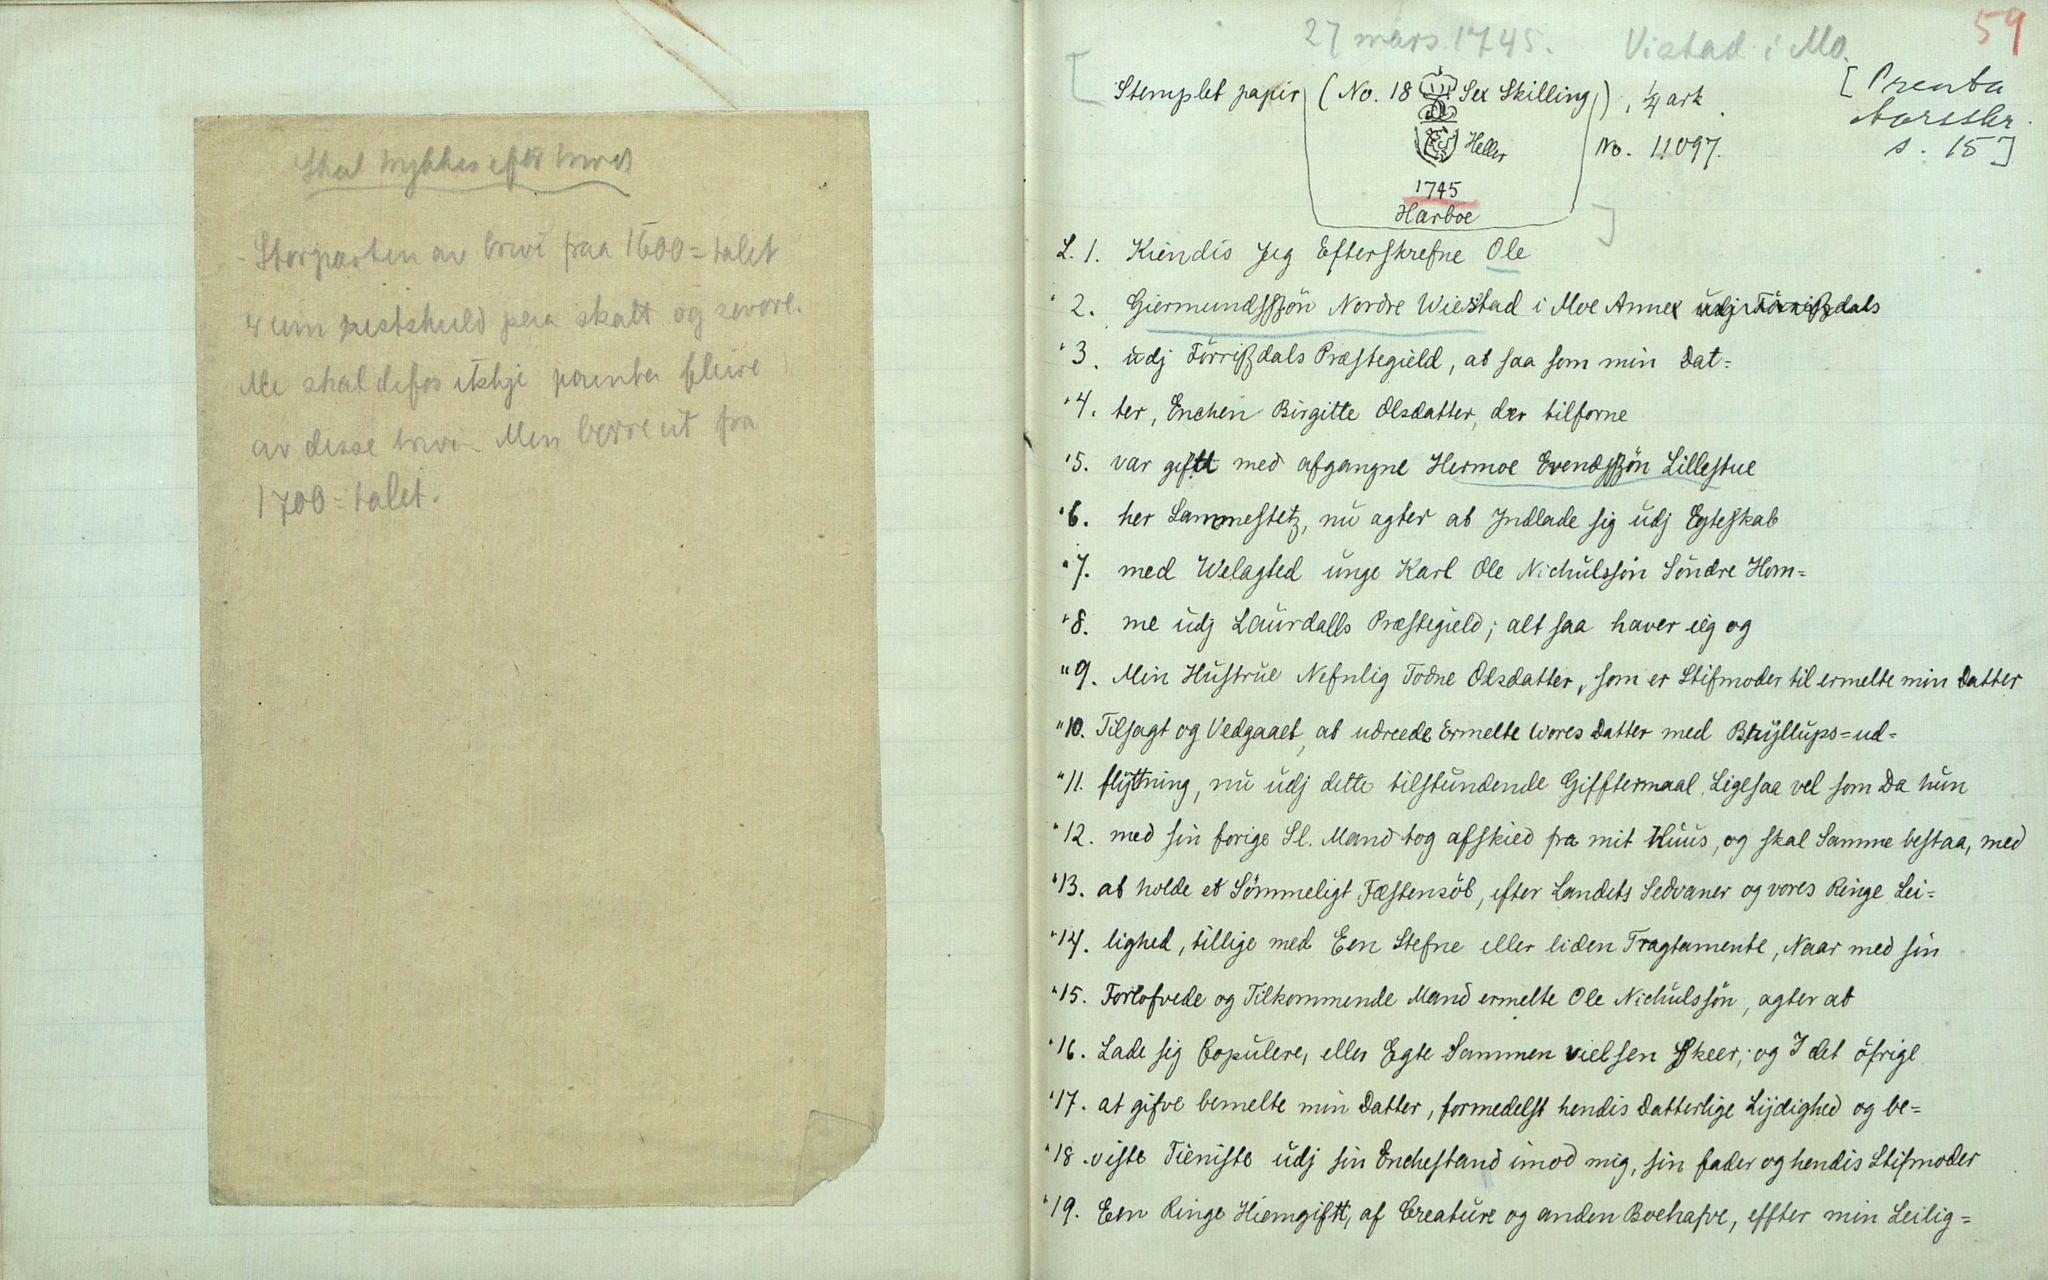 Storparten av brevi fraa 1600-talet
Me skal difor itkje prenta fleire
av disse brevi. Men berre ut fra
1700-talet.
59
27 mars 1745. Vistad i Mo.
[Prenta
Aarsskr.
s. 15]
Stemplet papir (No. 18 Sex Skilling), ¼ ark.
Heller No. 11097.
1745
Harboe
L. 1. Kiendis Jeg Efterskrefne Ole
" 2. Giermundssøn Nordre Wiestad i Moe Annex udj Tørrißdals
" 3. udj Tørrißdals Præstegield, at saa som min Dat=
" 4. ter, Enchen Birgitte Olsdatter, der tilforne
" 5. var giftt med afgangne Hermoe Evendssøn Lillestue
" 6. her Sammestetz, nu agter at Jndlade sig udj Egteskab
" 7. med Welagted unge Karl Ole Nichulssøn Søndre Hom=
" 8. me udj Laurdalls Præstegield; alt saa haver ieg og
" 9. Min Hustrue Nefnlig Todne Olsdatter, som er Stifmoder til ermelte min Datter
" 10. Tilsagt og Vedgaaet, at udreede Ermelte Wores Datter med Bryllups=ud=
" 11. flyttning, nu udj dette tilstundende Gifftermaal, Ligesaa vel som Da hun
" 12. med sin forige Sl. Mand tog afskied fra mit Huus, og skal Samme bestaa, med
" 13. at holde et Sømmeligt Fæstensøl, efter Landets Sedvaner og vores Ringe Lei=
" 14. lighed, tillige med Een Stefne eller liden Tragtamente, Naar med sin
" 15. Forlofvede og Tilkommende Mand ermelte Ole Nichulssøn, agter at
" 16. Lade sig Copulere, eller Egte Sammen vielsen Skeer; og I det øfrige
" 17. at gifve bemelte min Datter, formedelst hendis Datterlige Lydighed og be=
" 18. viste Tieniste udj sin Enchestand imod mig, sin fader og hendis Stifmoder
" 19. Een Ringe Hiemgiftt, af Creature og anden Boehafve, effter min Leilig=